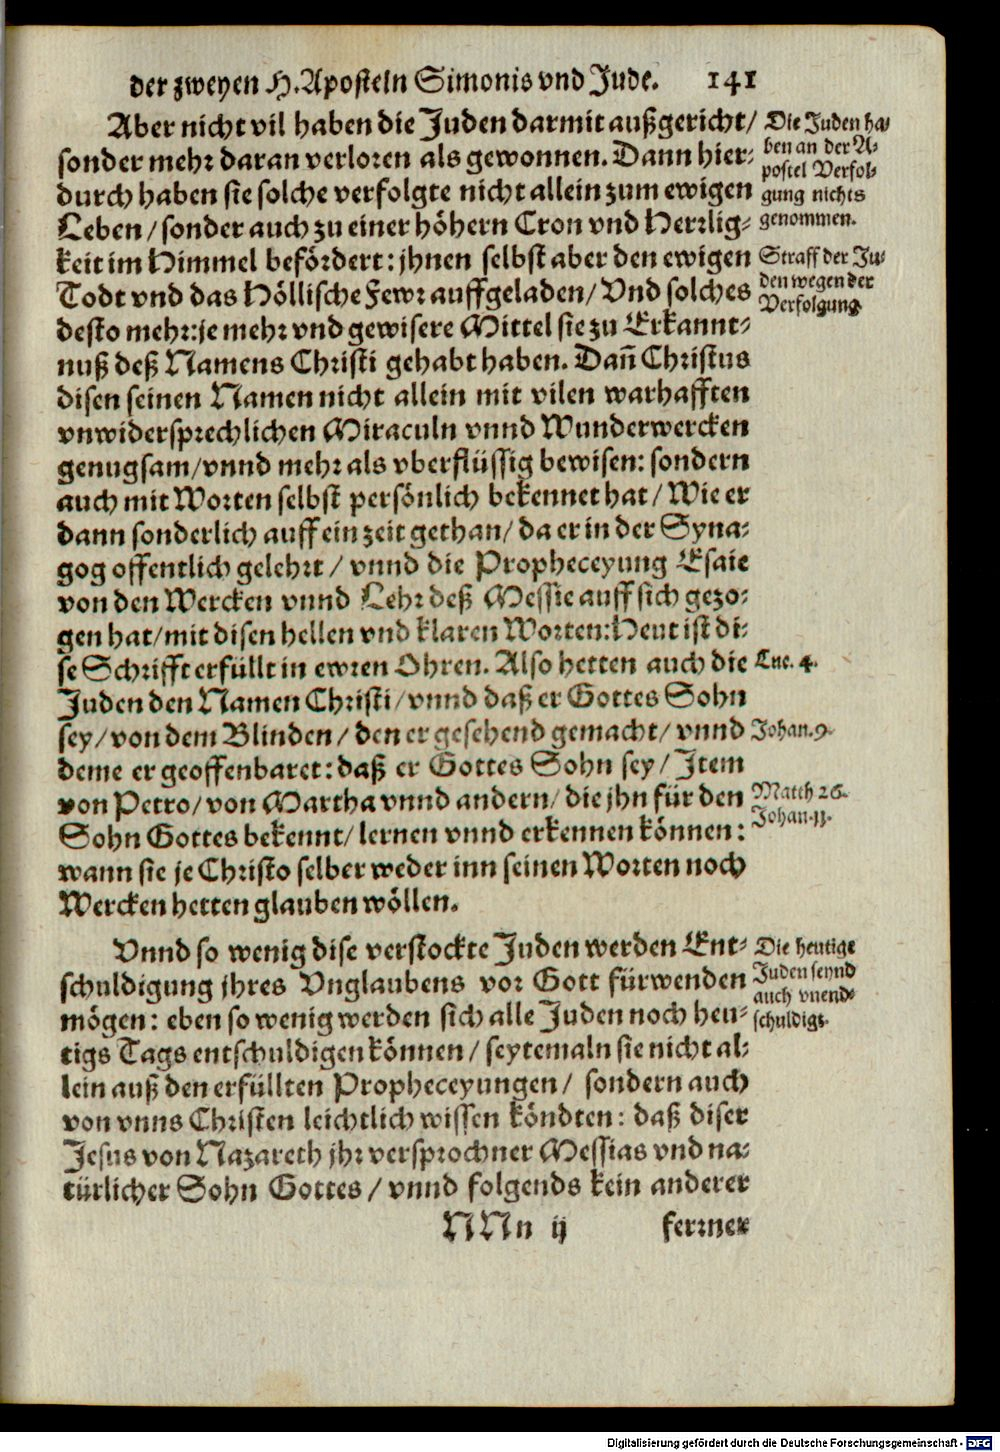 der zweyen H. Aposteln Simonis vnd Jude. 141
Aber nicht vil haben die Juden darmit außgericht/
sonder mehr daran verloren als gewonnen. Dann hier-
durch haben sie solche verfolgte nicht allein zum ewigen
Leben/ sonder auch zu einer höhern Cron vnd Herrlig-
keit im Himmel befördert: jhnen selbst aber den ewigen
Todt vnd das Höllische Fewr auffgeladen/ Vnd solches
desto mehr: je mehr vnd gewisere Mittel sie zu Erkannt-
nuß deß Namens Christi gehabt haben. Dañ Christus
disen seinen Namen nicht allein mit vilen warhafften
vnwidersprechlichen Miraculn vnnd Wunderwercken
genugsam/ vnnd mehr als vberflüssig bewisen: sondern
auch mit Worten selbst persönlich bekennet hat/ Wie er
dann sonderlich auff ein zeit gethan/ da er in der Syna-
gog offentlich gelehrt/ vnnd die Propheceyung Esaie
von den Wercken vnnd Lehr deß Messie auff sich gezo-
gen hat/ mit disen hellen vnd klaren Worten: Heut ist di-
se Schrifft erfüllt in ewren Ohren. Also hetten auch die
Juden den Namen Christi/ vnnd daß er Gottes Sohn
sey/ von dem Blinden/ den er gesehend gemacht/ vnnd
deme er geoffenbaret: daß er Gottes Sohn sey/ Item
von Petro/ von Martha vnnd andern/ die jhn für den
Sohn Gottes bekennt/ lernen vnnd erkennen können:
wann sie je Christo selber weder inn seinen Worten noch
Wercken hetten glauben wöllen.
Vnnd so wenig dise verstockte Juden werden Ent-
schuldigung jhres Vnglaubens vor Gott fürwenden
mögen: eben so wenig werden sich alle Juden noch heu-
tigs Tags entschuldigen können/ seytemaln sie nicht al-
lein auß den erfüllten Propheceyungen/ sondern auch
von vnns Christen leichtlich wissen köndten: daß diser
Jesus von Nazareth jhr versprochner Messias vnd na-
türlicher Sohn Gottes/ vnnd folgends kein anderer
NNn ij ferrner
Die Juden ha-
ben an der A-
postel Verfol-
gung nichts
genommen.
Straff der Ju-
den wegen der
Verfolgung.
Luc. 4.
Johan. 9.
Matth 26.
Johan. 11.
Die heutige
Juden seynd
auch vnend-
schuldigt.
Digitalisierung gefördert durch die Deutsche Forschungsgemeinschaft - DFG